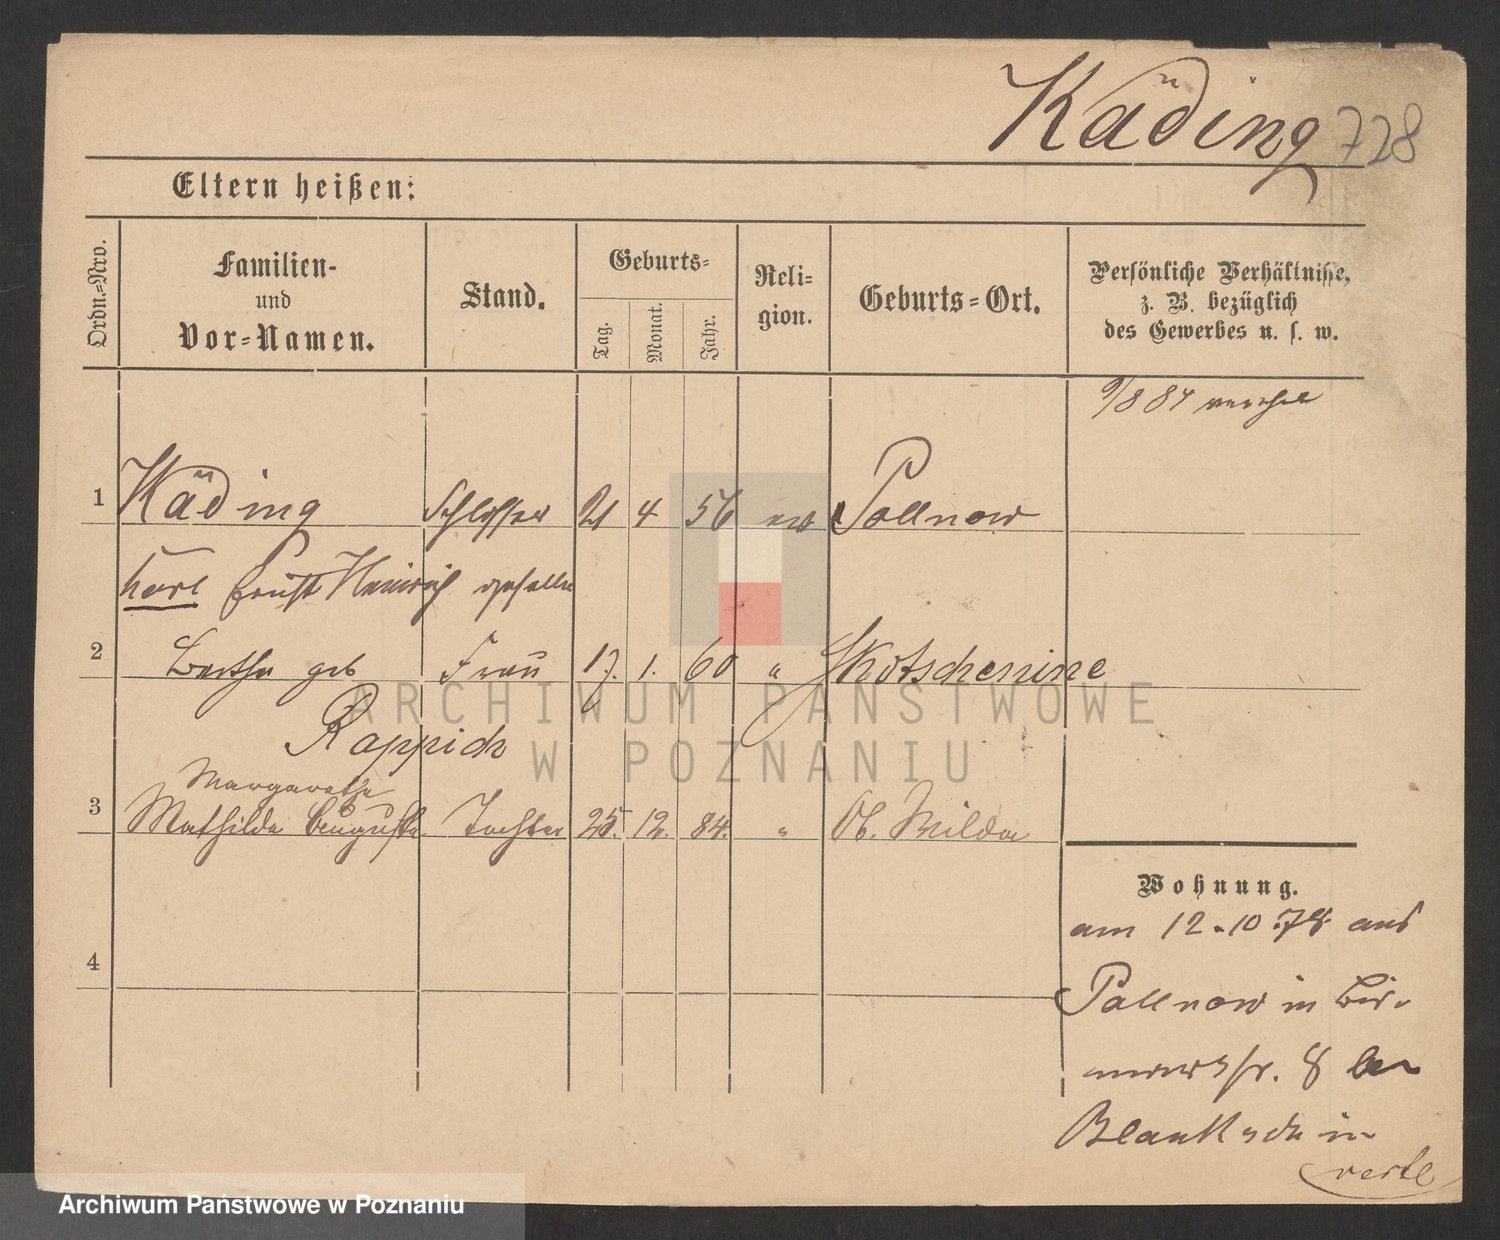 Käding 728
Eltern heißen:
Ordn.-Nro.
Familien-
und
Vor-Namen.
Stand.
Geburts-
Tag.
Monat.
Jahr.
Reli-
gion.
Geburts-Ort.
Persönliche Verhältnisse,
z. B. bezüglich
des Gewerbes u. s. w.
9/8 84
1 Käding Schlosser 21 4 56 ev Pollnow
Karl Ernst Heinrich geselle
2 Bertha geb Frau 17. 1. 60 "
Rappich
Margarethe
3 Mathilde Auguste Tochter 25. 12. 84. " Ob. Wilda
4
Wohnung.
am 12.10 78 aus
Pollnow in
8
in
verte
ARCHIWUM PAŃSTWOWE
W POZNANIU
Archiwum Państwowe w Poznaniu